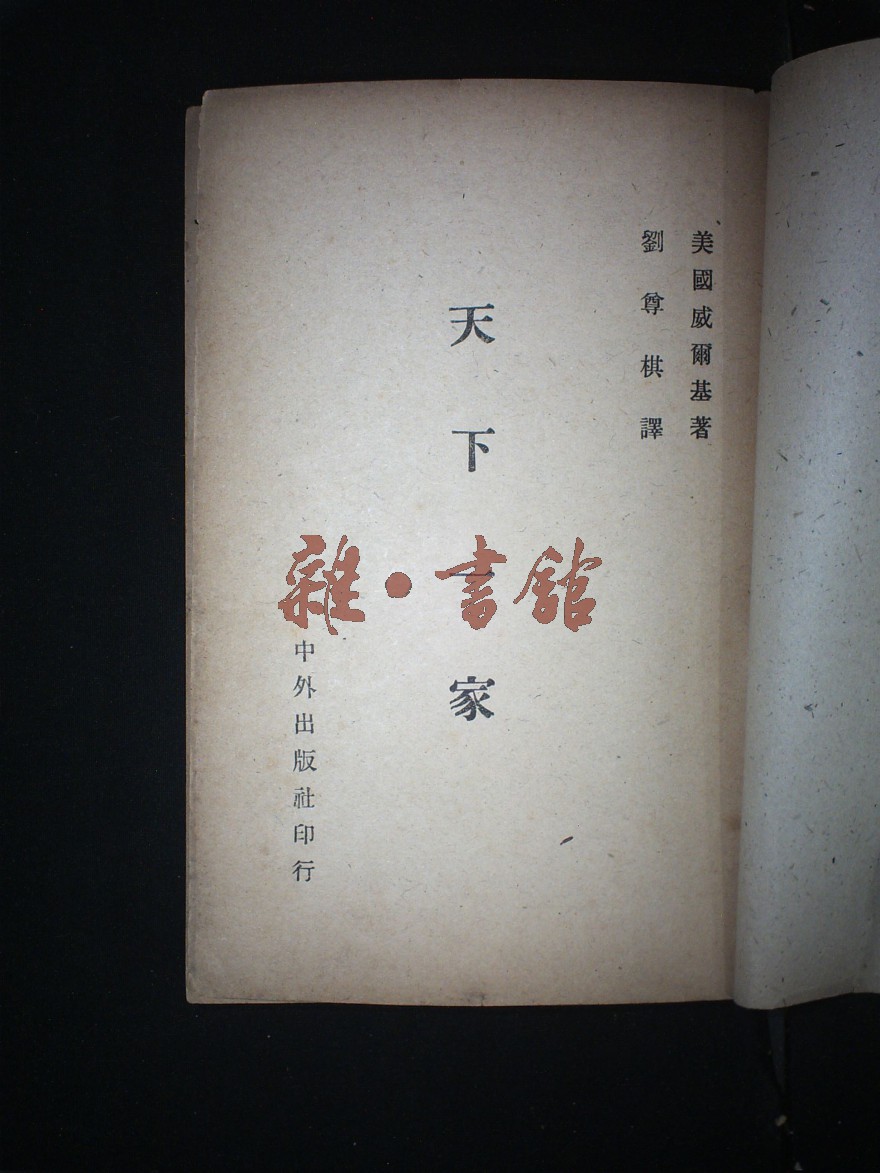 美國威爾基著
劉尊棋譯
天下一家
中外出版社印行
雜·書館